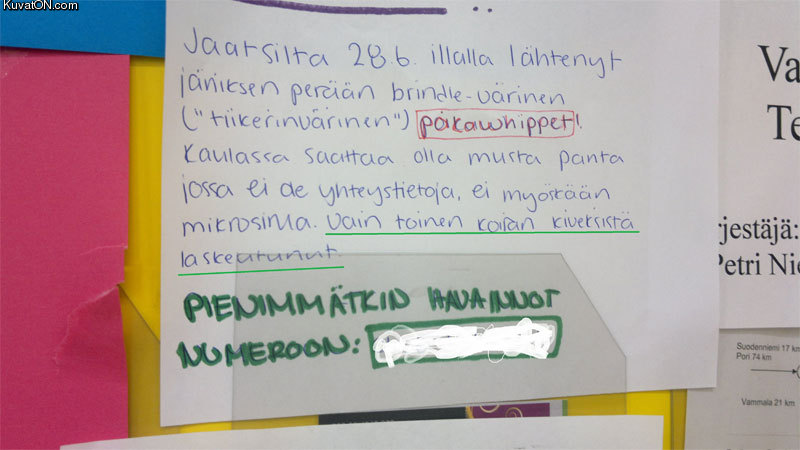 KuvatON.com
Jaatsilta 28.6. illalla lähtenyt
jäniksen perään brindle-värinen
("tiikerinvärinen") poikawhippet!
Kaulassa saattaa olla musta panta
jossa ei ole yhteystietoja, ei myöskään
mikrosirua. Vain toinen koiran kiveksistä
laskeutunut.
PIENIMMÄTKIN HAVAINNOT
NUMEROON:
Va
Te
rjestäjä:
Petri Nie
Suodenniemi 17 km
Pori 74 km
Vammala 21 km